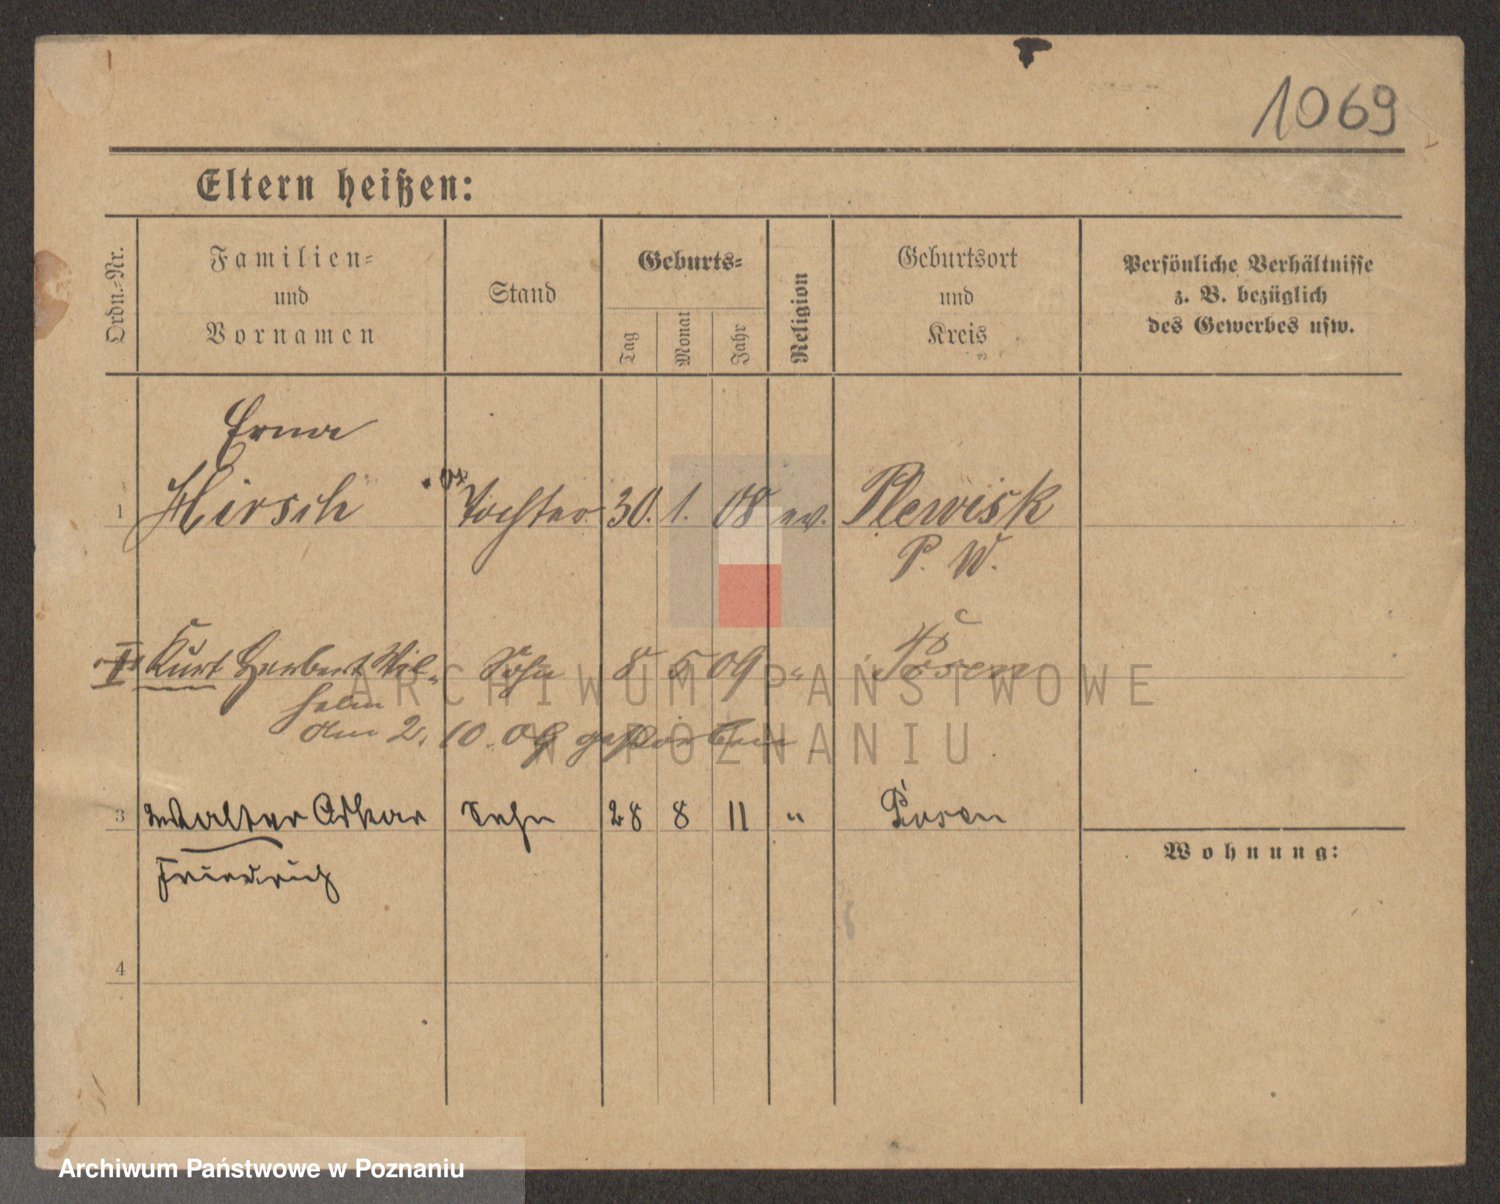 1069
Eltern heißen:
Ordn.-Nr.
Familien-
und
Vornamen
Stand
Geburts-
Tag
Monat
Jahr
Religion
Geburtsort
und
Kreis
Persönliche Verhältnisse
z. B. bezüglich
des Gewerbes usw.
Erna
1 Hirsch Tochter 30. 1. 08 ev. Plewisk
P. W.
Kurt Herbert Wil- Sohn 8 5 09 " Posen
helm
am 2. 10. 09 gestorben
3 Walter Oskar Sohn 28 8 11 " Posen
Friedrich
Wohnung:
4
ARCHIWUM PAŃSTWOWE
W POZNANIU
Archiwum Państwowe w Poznaniu